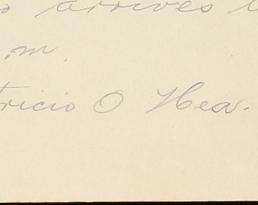 arrives
m.
tricio O Hea.